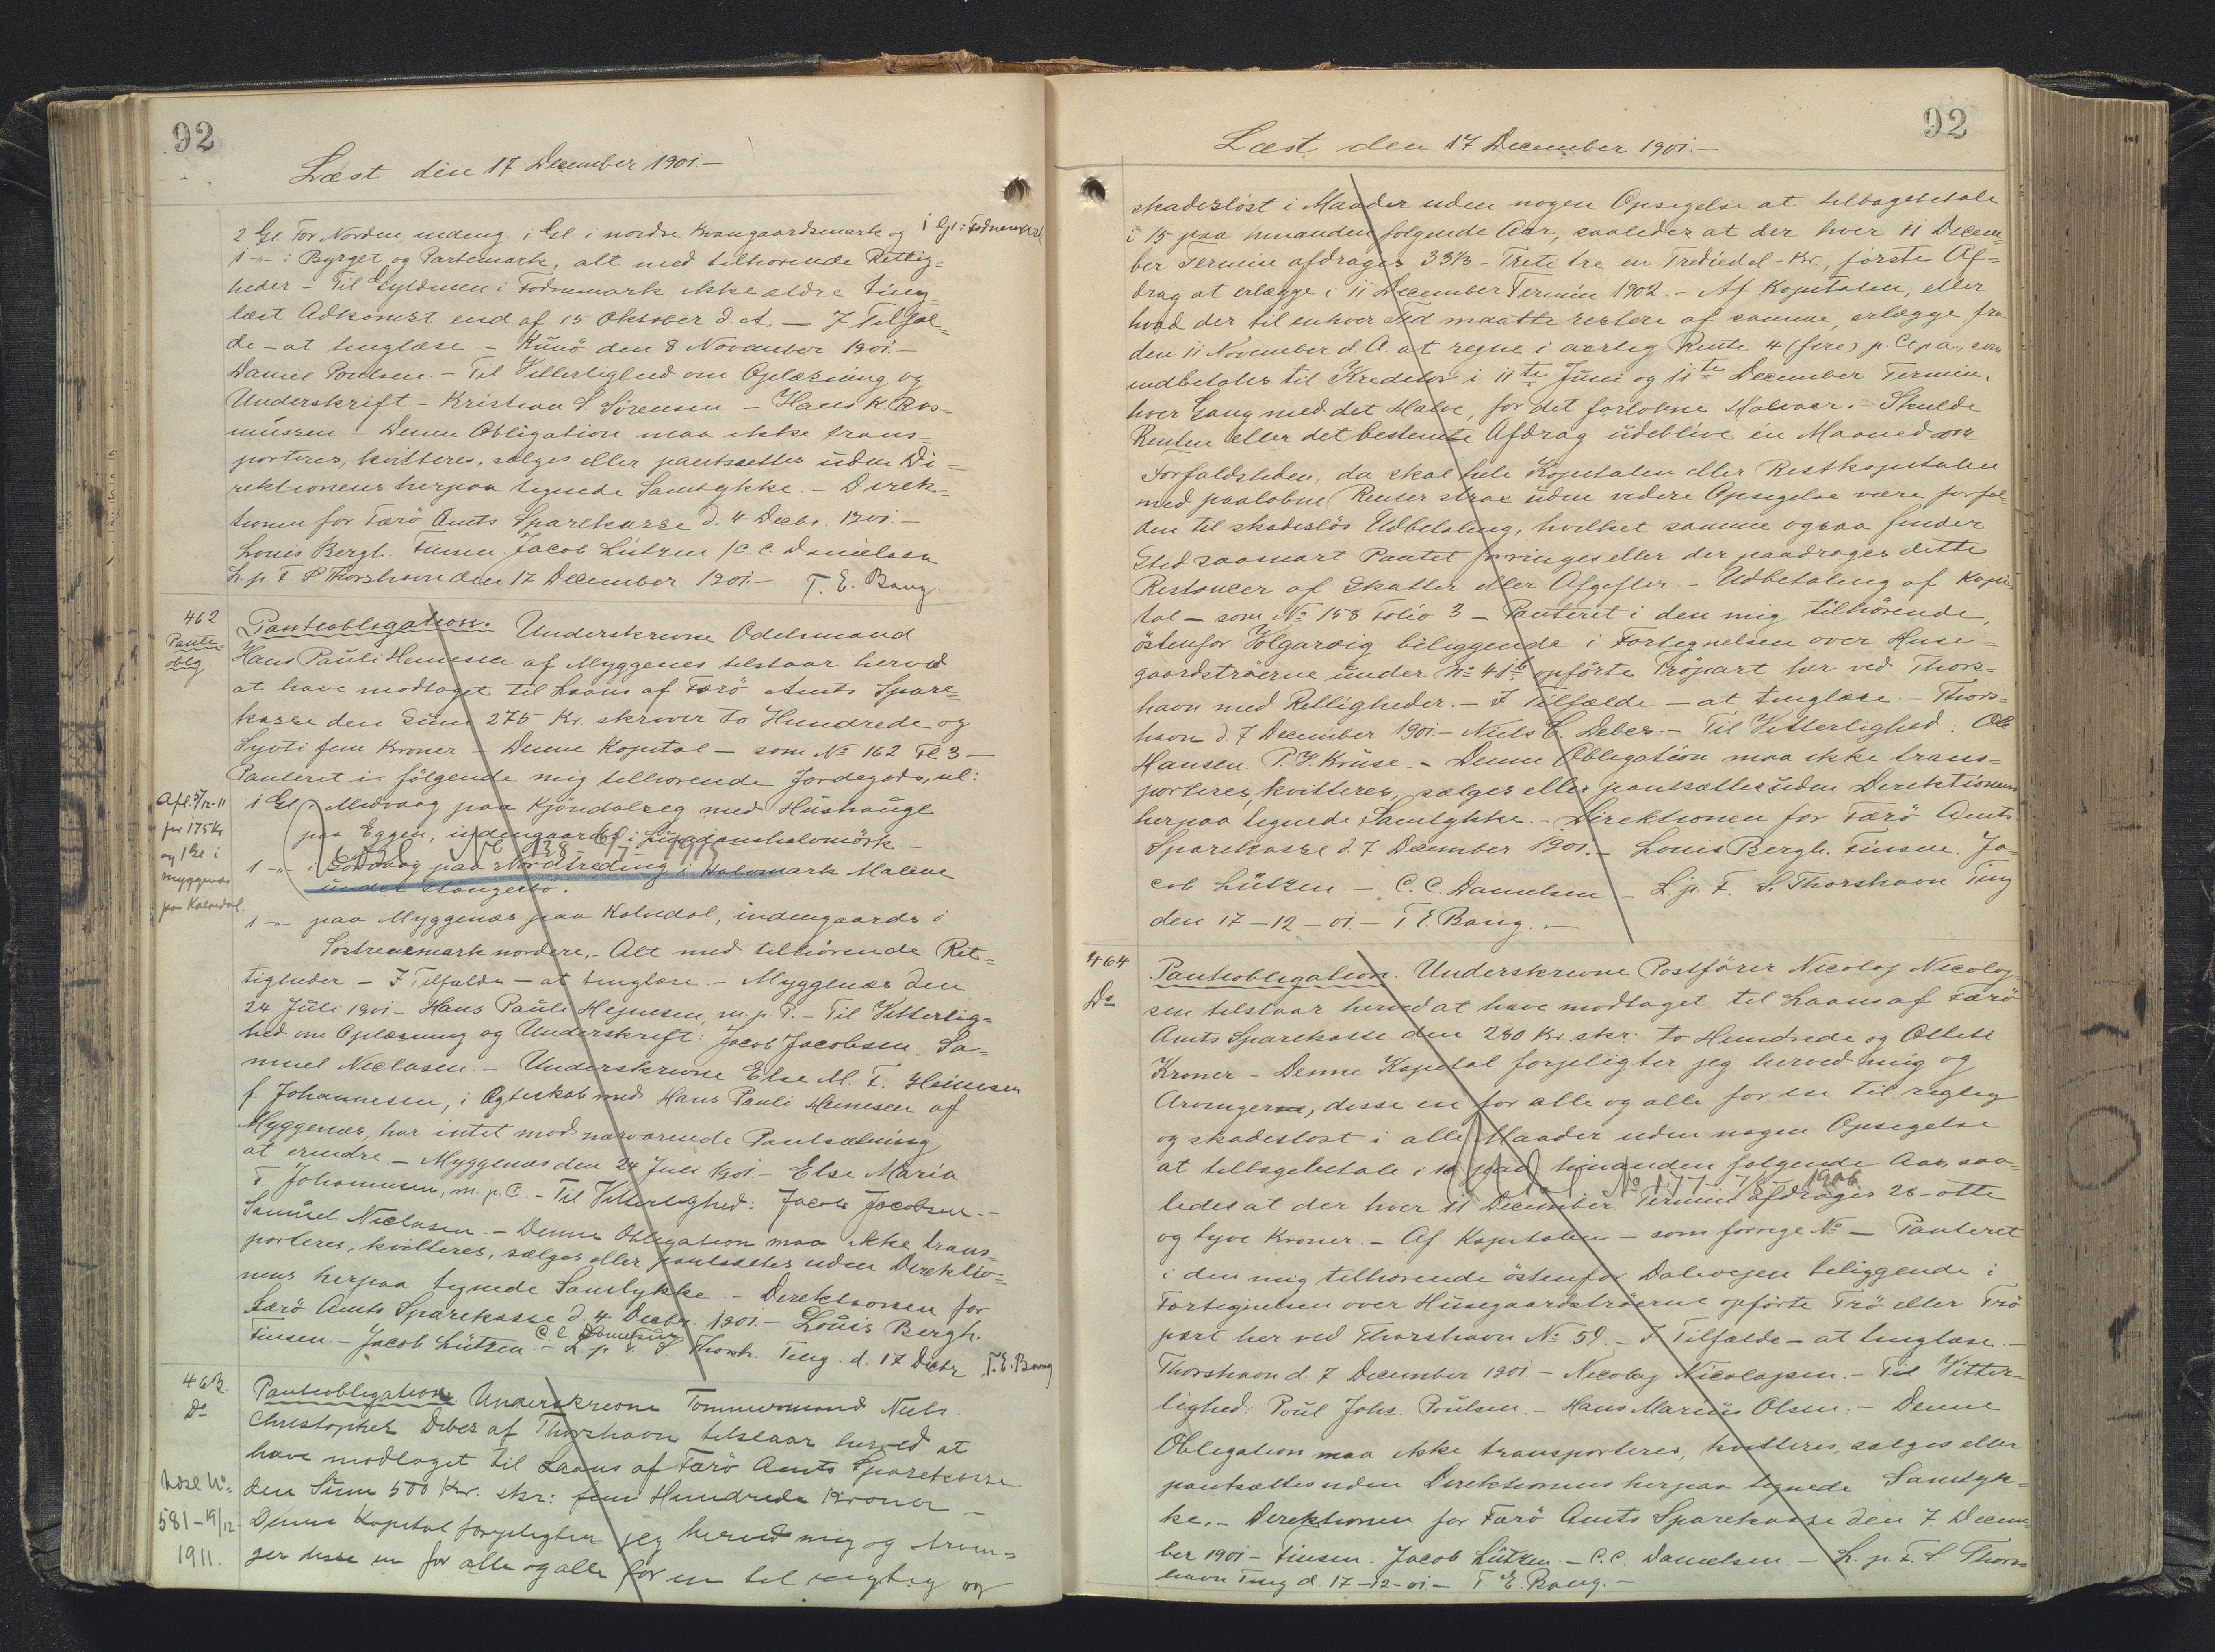 92
Læst den 17 December 1901.-
2 Gl For Norden indeng. i Gl i nordre Kvangaardsmark og 1 Gl i Fodnemark
1 -"- i Byrget og Partemark, alt med tilhørende Rettig=
heder - Til Gyldenen i Fodnemark ikke ældre ting=
læst Adkomst end af 15 Oktober d. A. - I Tilfæl=
de - at tinglæse - Kunö den 8 November 1901.-
Daniel Poulsen. - Til Vitterlighed om Oplæsning og
Underskrift - Kristian S. Sörensen - Hans K. Ras=
mussen - Denne Obligation maa ikke trans=
porteres, kvitteres, sælges eller pantsættes uden Di=
rektionens herpaa tegnede Samtykke - Direk=
tionen for Færö Amts Sparekasse d. 4 Decbr. 1901.-
Louis Bergh. Finsen. Jacob Lützen / C. C. Danielsen
L. p. F. S Thorshavn den 17 December 1901 - T. E. Bang.
462
Pante
oblg.
Pantobligation. Underskrevne Odelsmand
Hans Pauli Heinesen af Myggenes tilstaar herved
at have modtaget til Laans af Færö Amts Spare=
kasse den Sum 275 Kr. skriver to Hundrede og
Syvti fem Kroner. - Denne Kapital - som № 162 Fl 3 -
Panteret i følgende mig tilhørende Jordegods, nl:
Afl. 5/12-11
for 175 Kr
og 1 Gl i
Myggenæs
paa Kalvedal.
1 Gl i Midvaag paa Kjöndalseg med Hushauge
paa Eggen, indengaards i
Udsl № 138 1915
1 -"- i Sördvaag paa Nordtreding i Halvmark Malene
under Stangerbö.
1 -"- paa Myggenæs paa Kalvedal, indengaards i
Sostrenemark nordere,- Alt med tilhörende Ret=
tigheder - I Tilfælde - at tinglæse. - Myggenæs den
24 Juli 1901.- Hans Pauli Hejnesen, m. p. P. - Til Vitterlig=
hed om Oplæsning og Underskrift: Jacob Jacobsen. Sa=
muel Niclasen. - Underskrevne Else M. F. Heinesen
f. Johannesen, i Ægteskab med Hans Pauli Heinesen af
Myggenæs, har intet mod nærværende Pantsætning
at erindre. - Myggenæs den 24 Juli 1901.- Else Maria
F. Johannesen, m. p. P. - Til Vitterlighed: Jacob Jacobsen. -
Samuel Niclasen. - Denne Obligation maa ikke trans=
porteres, kvitteres, sælges eller pantsættes uden Direktio=
nens herpaa tegnede Samtykke. - Direktionen for
Færö Amts Sparekasse d. 4 Decbr. 1901.- Louis Bergh.
Finsen. - Jacob Lützen. - C C Danielsen L. p. F. S. Thorsh. Ting. d. 17 Decbr T. E. Bang
463
Do
Pantobligation Underskrevne Tömmermand Niels
Christopher Debes af Thorshavn tilstaar herved at
have modtaget til Laans af Færö Amts Sparekasse
den Sum 500 Kr. skr: fem Hundrede Kroner -
Udsl №
581 - 19/12
1911.
Denne Kapital forpligter jeg herved mig og Arvin=
ger disse en for alle og alle for en til rigtig og
92
Læst den 17 December 1901.-
skadeslöst i Maader uden nogen Opsigelse at tilbagebetale
i 15 paa hinanden følgende Aar, saaledes at der hver 11 Decem=
ber Termin afdrages 33⅓ - Treti tre en Trediedel - Kr., første Af=
drag at erlægge i 11 December Termin 1902. - Af Kapitalen, eller
hvad der til enhver Tid maatte restere af samme, erlægge fra
den 11 November d. A. at regne i aarlig Rente 4 (fire) p. Ct p.a., som
indbetales til Kreditor i 11te Juni og 11te December Termin,
hver Gang med det Halve, for det forløbne Halvaar. - Skulde
Renten eller det bestemte Afdrag udeblive en Maaned over
Forfaldstiden, da skal hele Kapitalen eller Restkapitalen
med paaløbne Renter strax uden videre Opsigelse være forfal=
den til skadeslös Udbetaling, hvilket samme ogsaa finder
Sted saasnart Pantet forringes eller der paadrages dette
Restancer af Skatter eller Afgifter. - Udbetaling af Kapi=
tal - som № 158 Folio 3 - Panteret i den mig tilhörende,
östenfor Volgaroig beliggende i Fortegnelsen over Huse=
gaardströerne under № 41b opførte Tröpart her ved Thors=
havn med Rettigheder. - I Tilfælde - at tinglæse. - Thors=
havn d. 7 December 1901.- Niels C. Debes. - Til Vitterlighed: Ole
Hansen. P. J. Kruse. - Denne Obligation maa ikke trans=
porteres, kvitteres, sælges eller pantsættes uden Direktionens
herpaa tegnede Samtykke. - Direktionen for Færö Amts
Sparekasse d. 7 December 1901. - Louis Bergh. Finsen. Ja=
cob Lützen. - C. C. Danielsen - L. p. F. S. Thorshavn Ting
den 17-12-01.- T. E. Bang. -
464
Do
Pantobligation. Underskrevne Postförer Nicolaj Nicolaj=
sen tilstaar herved at have modtaget til Laans af Færö
Amts Sparekasse den 280 Kr. skr. to Hundrede og Otteti
Kroner - Denne Kapital forpligter jeg herved mig og
Arvingerne, disse en for alle og alle for en til rigtig
og skadeslöst i alle Maader uden nogen Opsigelse
at tilbagebetale i 10 paa hinanden følgende Aar, saa=
Udsl № 177 1906
ledes at der hver 11 December Termin afdrages 28 - otte
og tyve Kroner. - Af Kapitalen - som forrige № - Panteret
i den mig tilhørende östenfor Dalevejen beliggende i
Fortegnelsen over Husegaardströerne opførte Trö eller Trö
part her ved Thorshavn № 59. - I Tilfælde - at tinglæse. -
Thorshavn d. 7 December 1901. - Nicolaj Nicolajsen. - Til Vitter=
lighed: Poul Johs. Poulsen. - Hans Marius Olsen. - Denne
Obligation maa ikke transporteres, kvitteres, sælges eller
pantsættes uden Direktionens herpaa tegnede Samtyk=
ke. - Direktionen for Færö Amts Sparekasse den 7 Decem=
ber 1901 - Finsen. Jacob Lützen. - C. C. Danielsen. - L. p. F. S Thors=
havn Ting d. 17-12-01.- T. E. Bang. -